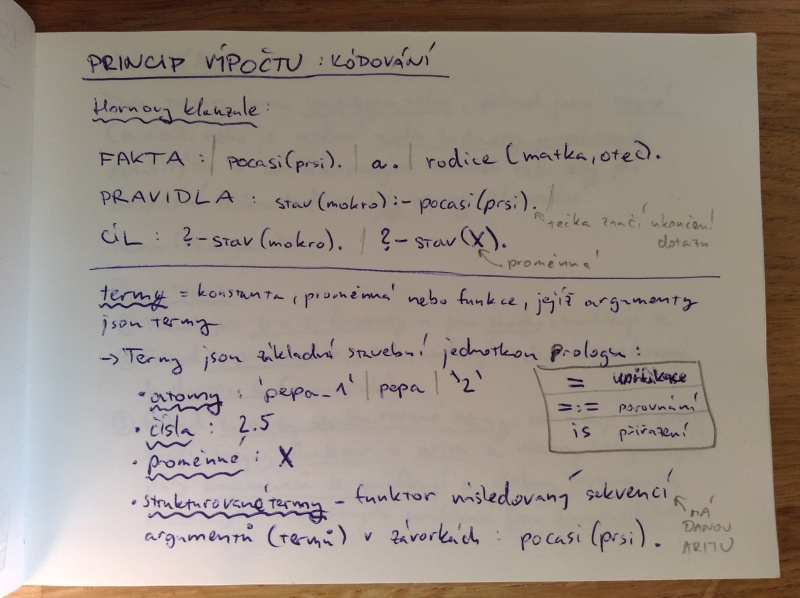 PRINCIP VÝPOČTU : KÓDOVÁNÍ
Hornovy klauzule :
FAKTA : | pocasi(prsi). | a. | rodice (matka, otec).
PRAVIDLA : stav(mokro) :- pocasi(prsi). |
tečka značí ukončení
dotazu
CÍL : ?-stav(mokro). | ?-stav(X).
proměnná
termy = konstanta, proměnná nebo funkce, jejíž argumenty
jsou termy
→ Termy jsou základní stavební jednotkou Prologu :
• atomy : 'pepa_1' | pepa | '2'
• čísla : 2.5
• proměnné : X
= unifikace
=:= porovnání
is přiřazení
• strukturované termy - funktor následovaný sekvencí
argumentů (termů) v závorkách : pocasi(prsi).
MÁ
DANOU
ARITU